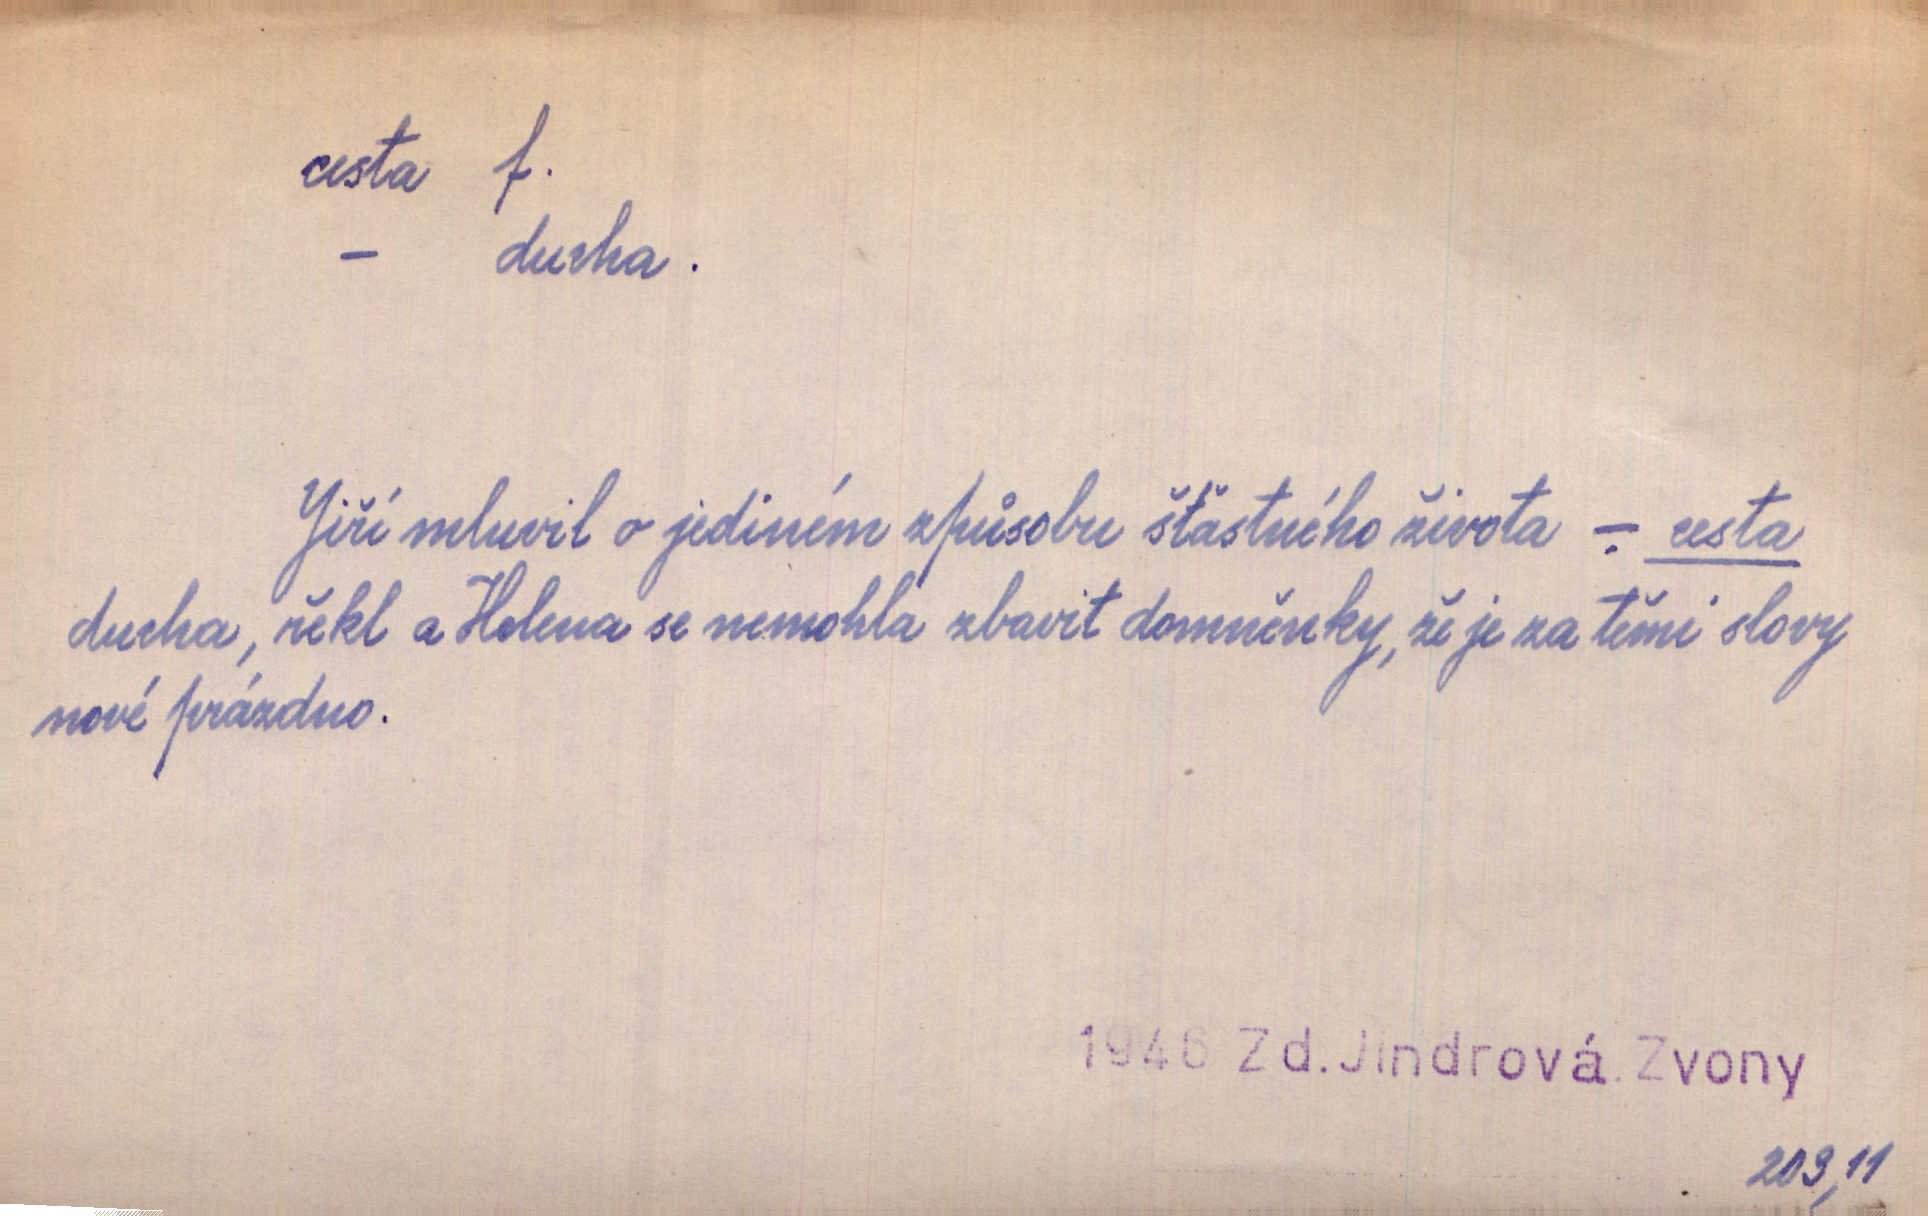 cesta f.
– ducha.
Jiří mluvil o jediném způsobu šťastného života –: cesta
ducha, řekl a Helena se nemohla zbavit domněnky, že je za těmi slovy
nové prázdno.
1946 Zd. Jindrová. Zvony
209,11